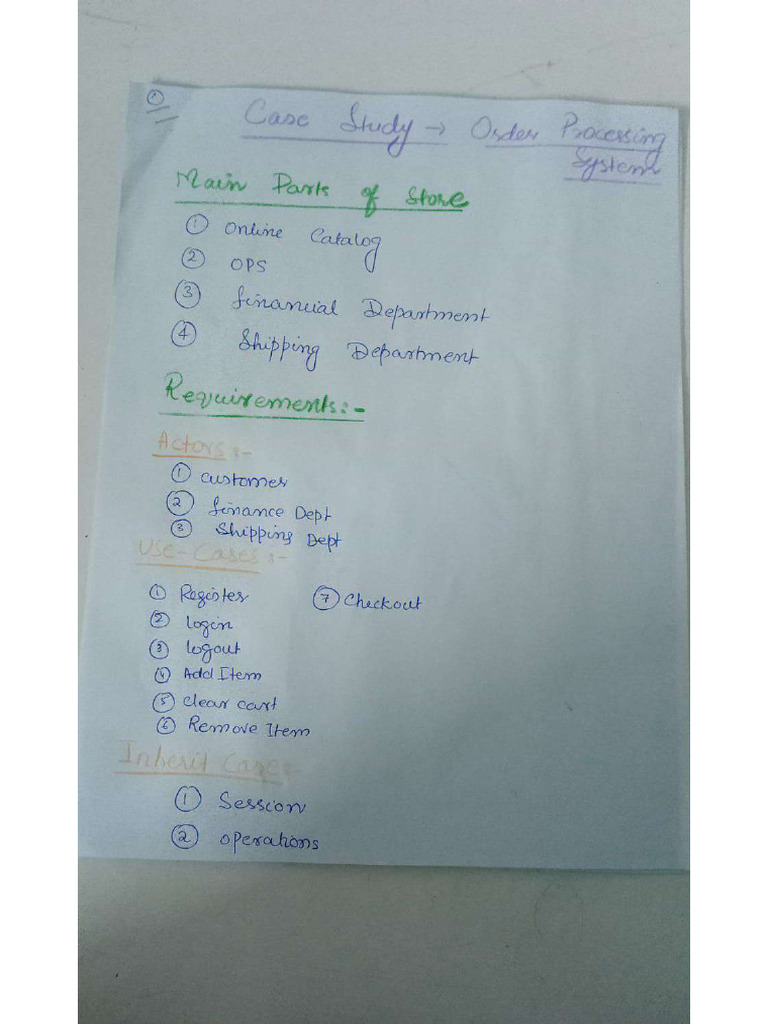 ①
Case Study → Order Processing
System
Main Parts of Store
① Online Catalog
② OPS
③ Financial Department
④ Shipping Department
Requirements:-
Actors:-
① Customer
② Finance Dept
③ Shipping Dept
Use-Cases:-
① Register
② Login
③ Logout
④ Add Item
⑤ Clear cart
⑥ Remove Item
⑦ Checkout
Inherit Cases
① Session
② Operations